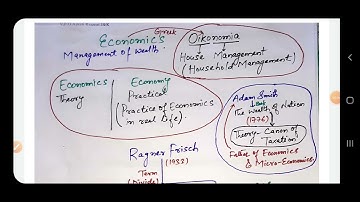 Greek
Economics
Management of wealth.
Oikonomia
House Management
(Household Management)
Economics
Theory
Economy
Practical
(Practice of Economics
in real life)
Adam Smith
Book
The Wealth of Nation
(1776)
Theory- Canon of
Taxation
Father of Economics
& Micro-Economics
Ragner Frisch
(1933)
Term
(Divide)